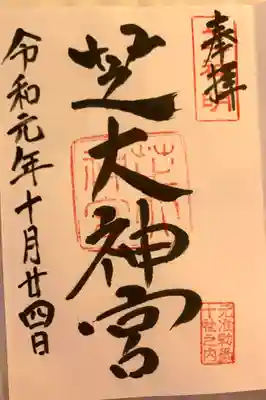 奉拝
芝大神宮
元准勅祭
十社之内
令和元年十月廿四日